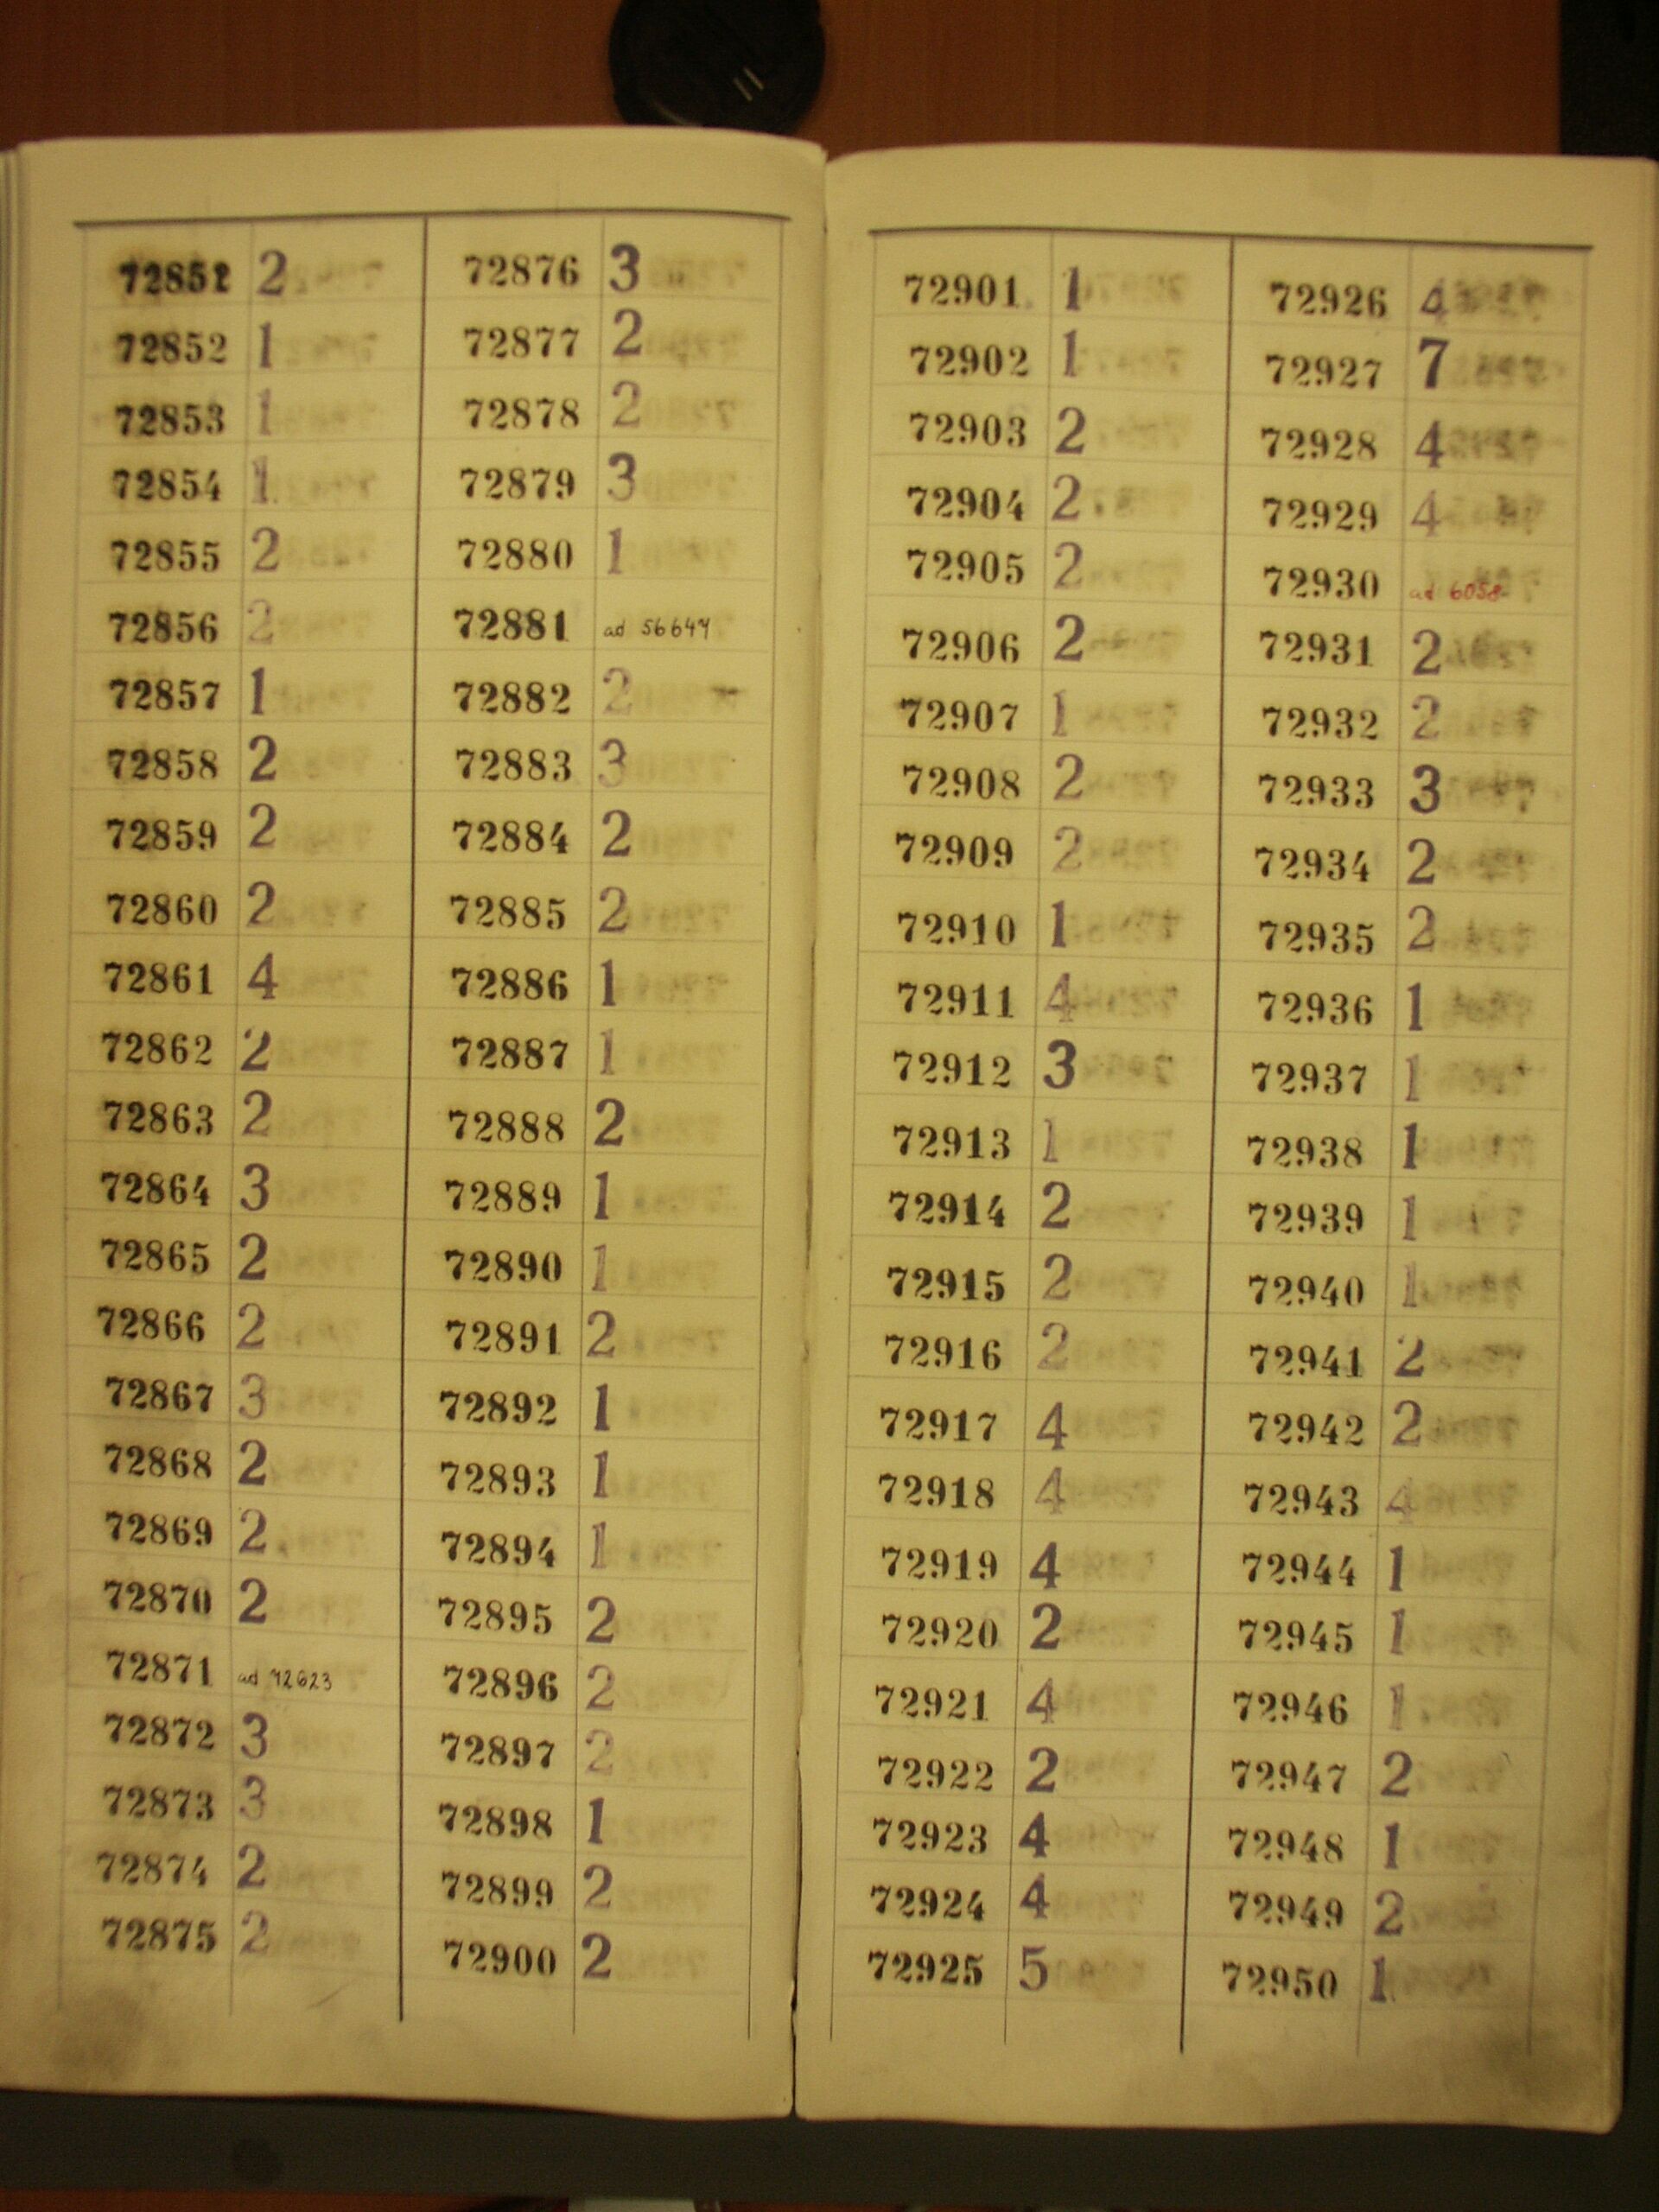 72851 2
72852 1
72853 1
72854 1
72855 2
72856 2
72857 1
72858 2
72859 2
72860 2
72861 4
72862 2
72863 2
72864 3
72865 2
72866 2
72867 3
72868 2
72869 2
72870 2
72871 ad 72623
72872 3
72873 3
72874 2
72875 2
72876 3
72877 2
72878 2
72879 3
72880 1
72881 ad 56647
72882 2
72883 3
72884 2
72885 2
72886 1
72887 1
72888 2
72889 1
72890 1
72891 2
72892 1
72893 1
72894 1
72895 2
72896 2
72897 2
72898 1
72899 2
72900 2
72901 1
72902 1
72903 2
72904 2
72905 2
72906 2
72907 1
72908 2
72909 2
72910 1
72911 4
72912 3
72913 1
72914 2
72915 2
72916 2
72917 4
72918 4
72919 4
72920 2
72921 4
72922 2
72923 4
72924 4
72925 5
72926 4
72927 7
72928 4
72929 4
72930 ad 6058
72931 2
72932 2
72933 3
72934 2
72935 2
72936 1
72937 1
72938 1
72939 1
72940 1
72941 2
72942 2
72943 4
72944 1
72945 1
72946 1
72947 2
72948 1
72949 2
72950 1